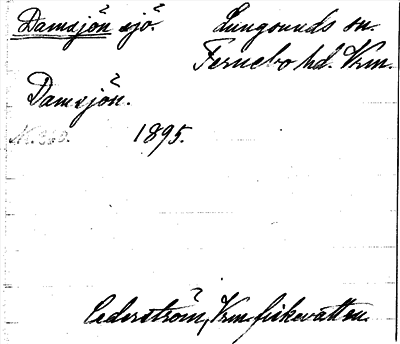 Damsjön sjö. Lungsunds sn.
Fernebo hd. Vrm.
Damsjön.
1895.
Cederström, Vrm. fiskevatten